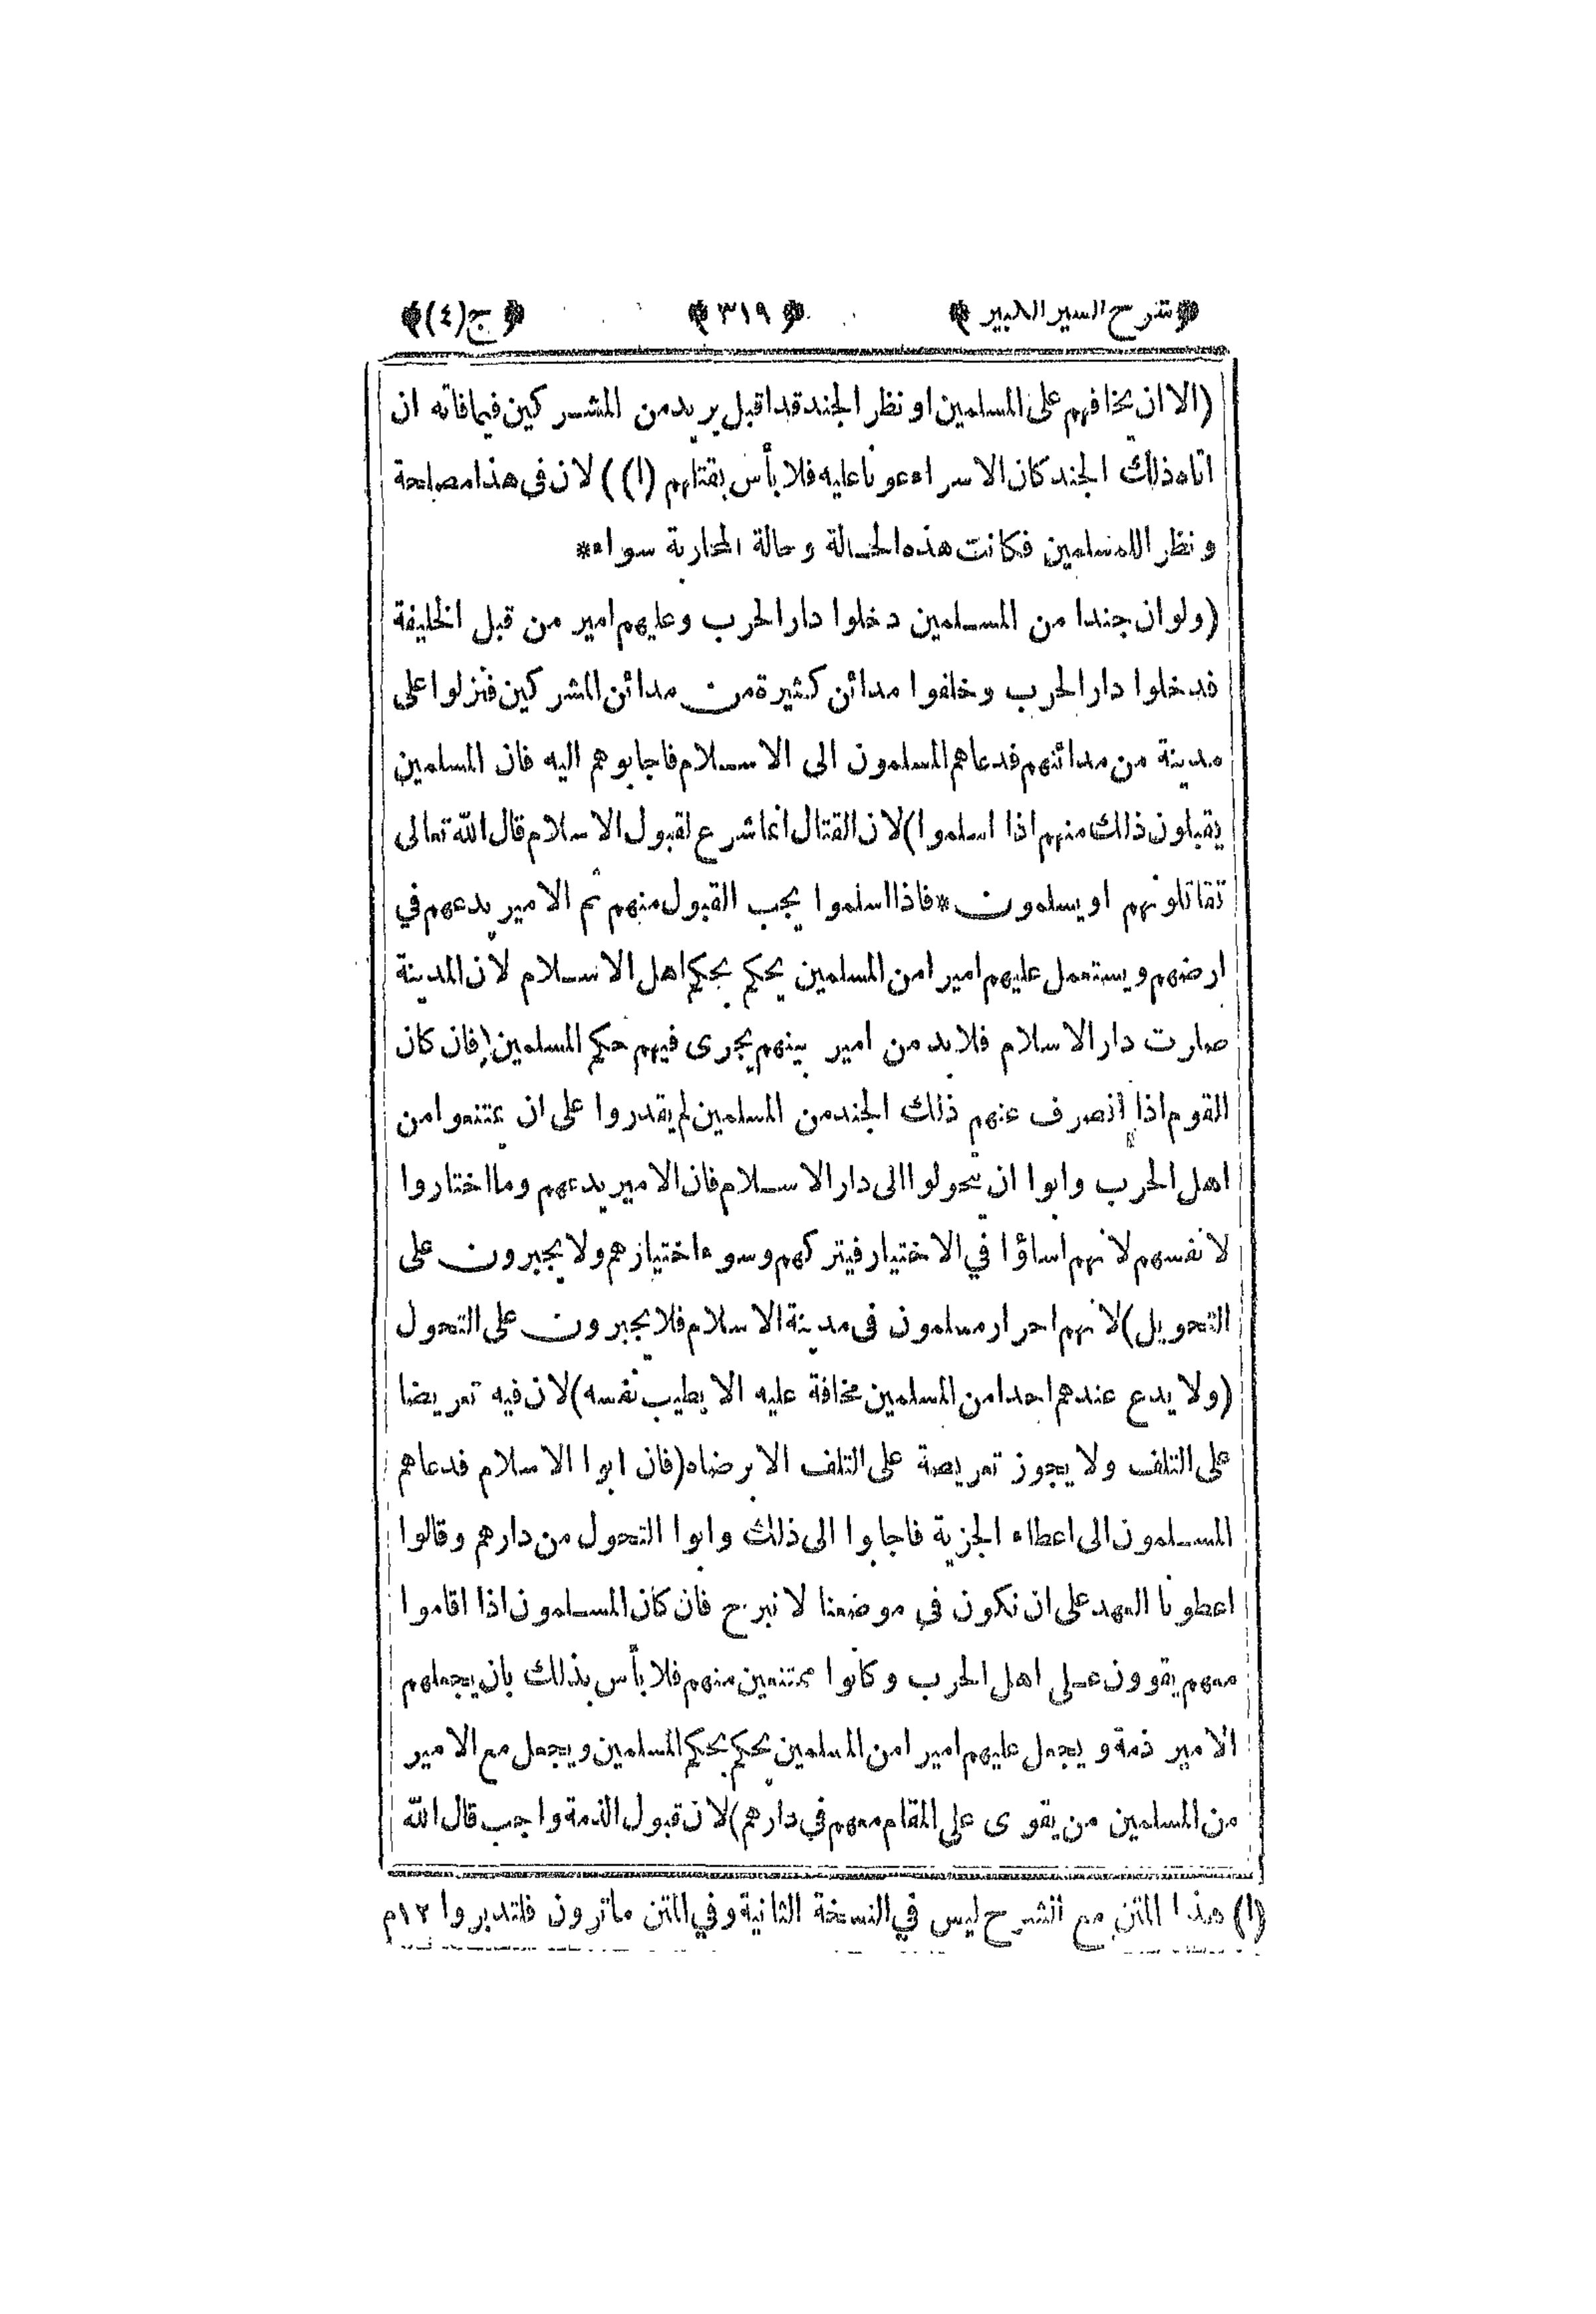 ﴿شرح السير الكبير﴾ ﴿٣١٩﴾ ﴿ج(٤)﴾
(الا ان يخافهم على المسلمين او نظر الجند قد اقبل يريد من المشركين فيما فاته ان
اتاه ذلك الجند كان الاسراء عونا عليه فلا بأس بقتلهم (١)) لان في هذا مصلحة
و نظر اللمسلمين فكانت هذه الحالة وحالة المحاربة سواء*
(ولو ان جندا من المسلمين دخلوا دار الحرب وعليهم امير من قبل الخليفة
فدخلوا دار الحرب وخلفوا مدائن كثيرة من مدائن المشركين فنزلوا على
مدينة من مدائنهم فدعاهم المسلمون الى الاسلام فاجابوهم اليه فان المسلمين
يقبلون ذلك منهم اذا اسلموا) لان القتال انما شرع لقبول الاسلام قال الله تعالى
تقاتلونهم او يسلمون* فاذا اسلموا يجب القبول منهم ثم الامير يدعهم في
ارضهم ويستعمل عليهم اميرا من المسلمين يحكم بحكم اهل الاسلام لان المدينة
صارت دار الاسلام فلا بد من امير بينهم يجرى فيهم حكم المسلمين (فان كان
القوم اذا انصرف عنهم ذلك الجند من المسلمين لم يقدروا على ان يمتنعوا من
اهل الحرب وابوا ان يتحولوا الى دار الاسلام فان الامير يدعهم وما اختاروا
لانفسهم لانهم اساؤا في الاختيار فيتركهم وسوء اختيازهم ولا يجبرون على
التحويل) لانهم احرار مسلمون في مدينة الاسلام فلا يجبرون على التحول
(ولا يدع عندهم احدا من المسلمين مخافة عليه الا بطيب نفسه) لان فيه تعريضا
على التلف ولا يجوز تعريضة على التلف الا برضاه (فان ابوا الاسلام فدعاهم
المسلمون الى اعطاء الجزية فاجابوا الى ذلك وابوا التحول من دارهم وقالوا
اعطونا العهد على ان نكون في موضعنا لا نبرح فان كان المسلمون اذا اقاموا
معهم يقوون على اهل الحرب وكانوا ممتنعين منهم فلا بأس بذلك بان يجعلهم
الامير ذمة ويجعل عليهم اميرا من المسلمين يحكم بحكم المسلمين ويجعل مع الامير
من المسلمين من يقوى على المقام معهم في دارهم) لان قبول الذمة واجب قال الله
(١) هذا المتن مع الشرح ليس في النسخة الثانية وفي المتن ماترون فلتدبروا ١٢م